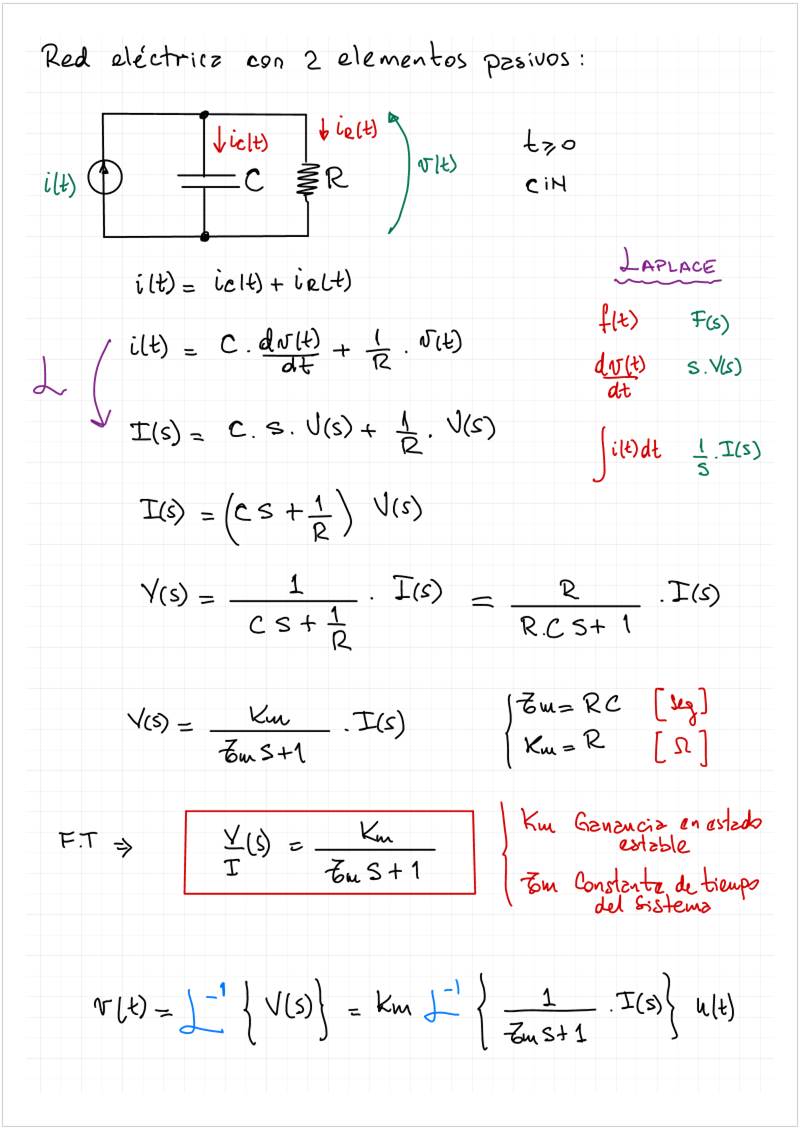 Red eléctrica con 2 elementos pasivos:
i(t)
↓ ic(t)
C
↓ iR(t)
R
v(t)
t≥0
CiN
i(t) = ic(t) + iR(t)
ℒ
i(t) = C . dv(t)/dt + 1/R . v(t)
I(s) = C . s . V(s) + 1/R . V(s)
LAPLACE
f(t) F(s)
dv(t)/dt s.V(s)
∫i(t)dt 1/s . I(s)
I(s) = (C S + 1/R) V(s)
V(s) = 1/(C S + 1/R) . I(s) = R/(R.C S + 1) . I(s)
V(s) = Km/(τm S+1) . I(s)
τm = RC [seg]
Km = R [Ω]
F.T ⇒ V/I (s) = Km/(τm S + 1)
Km Ganancia en estado
estable
τm Constante de tiempo
del sistema
v(t) = ℒ⁻¹ { V(s) } = Km ℒ⁻¹ { 1/(τm S+1) . I(s) } u(t)